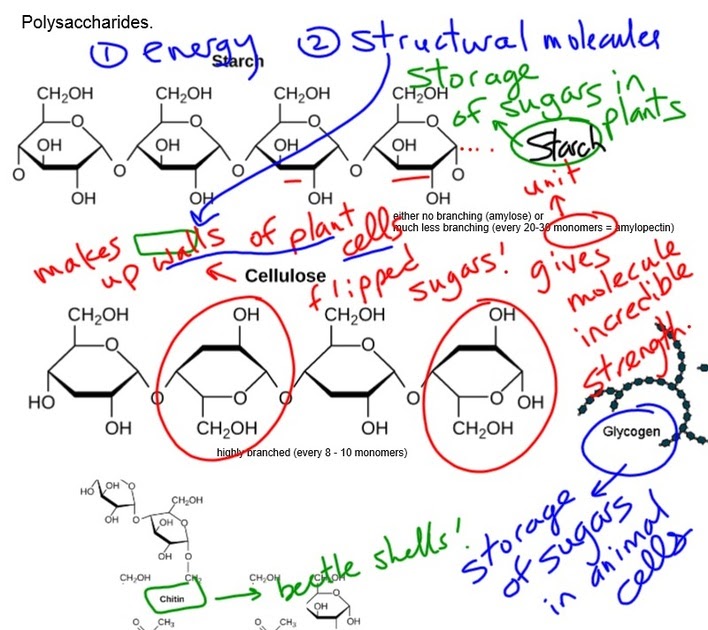 Polysaccharides.
① energy ② structural molecules
Starch
storage of sugars in plants
CH₂OH CH₂OH CH₂OH CH₂OH
O O O O
OH OH OH OH
O O O O
OH OH OH OH
Starch
unit
either no branching (amylose) or
much less branching (every 20-30 monomers = amylopectin)
makes up walls of plant cells
Cellulose
flipped sugars!
gives molecule incredible strength.
CH₂OH OH CH₂OH OH
O O
HO O O O OH
OH O OH O
CH₂OH CH₂OH
highly branched (every 8 - 10 monomers)
Glycogen
storage of sugars in animal cells
HO OH O
OH O
CH₂OH
O
OH
OH
O
CH₂OH CH₂OH CH₂OH
Chitin
beetle shells!
O
OH
OH
O CH₃ O CH₃